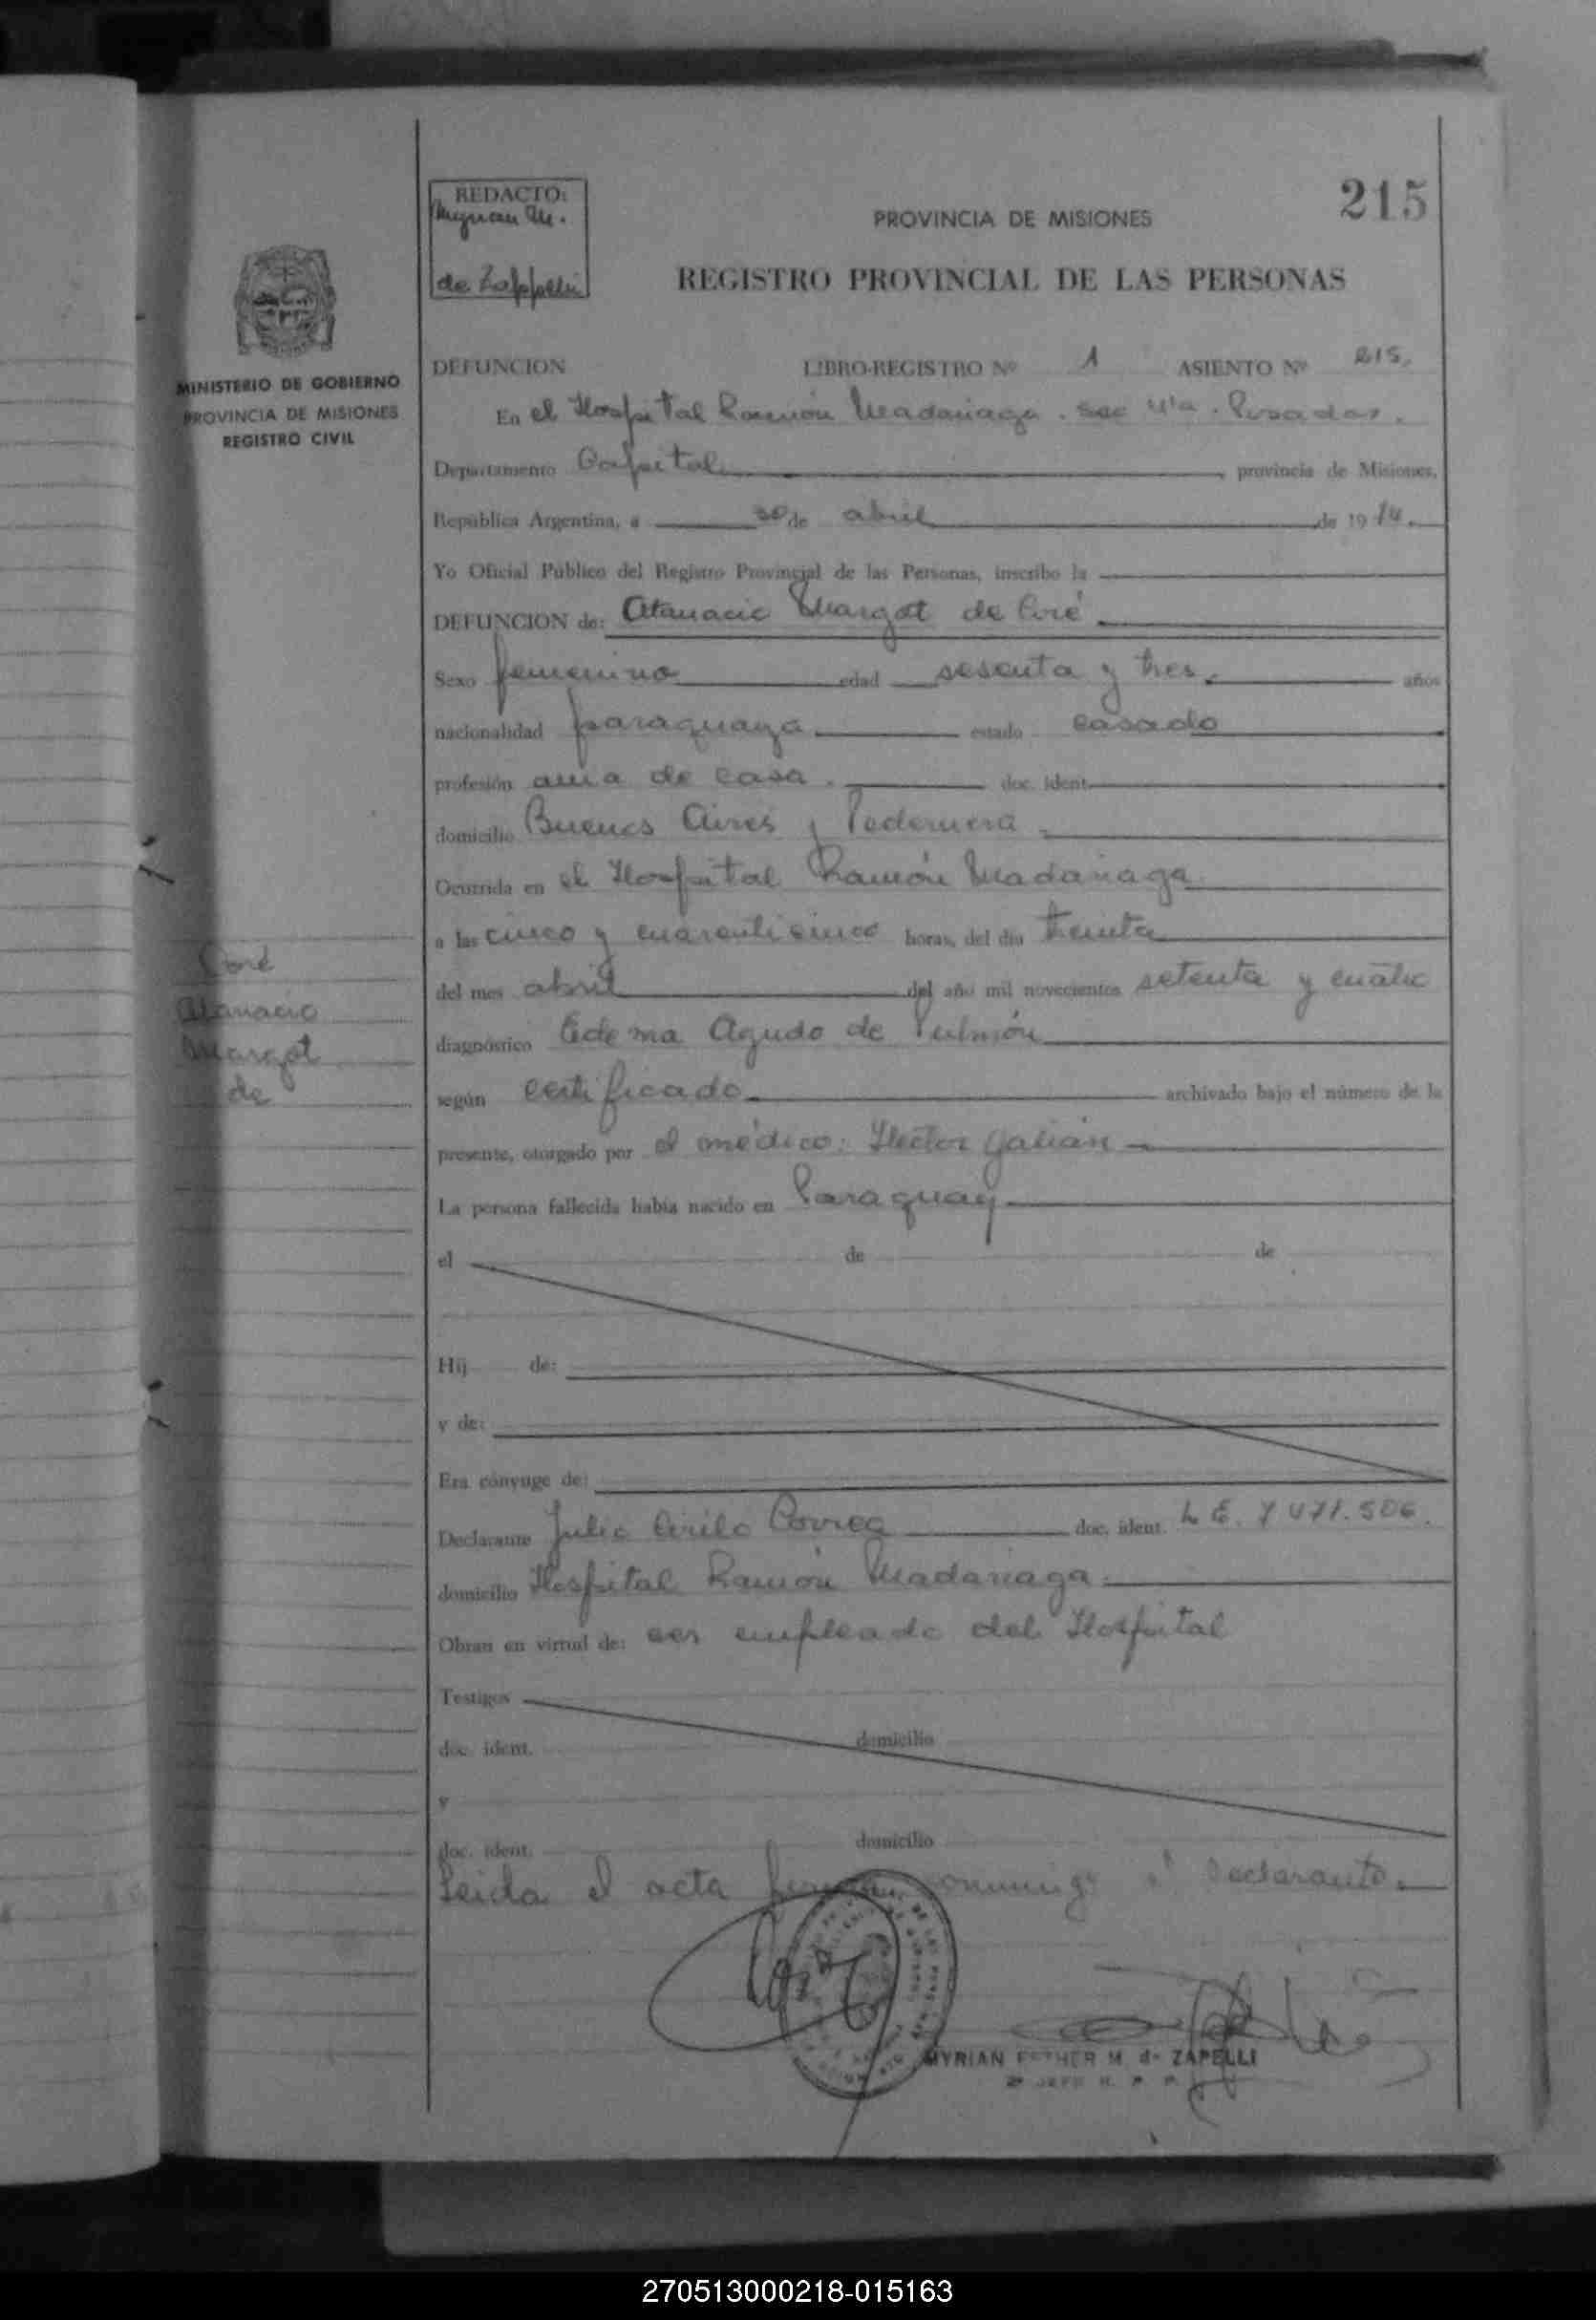 215
REDACTO:
Myrian M.
de Zappelli
PROVINCIA DE MISIONES
REGISTRO PROVINCIAL DE LAS PERSONAS
MINISTERIO DE GOBIERNO
PROVINCIA DE MISIONES
REGISTRO CIVIL
DEFUNCION LIBRO-REGISTRO Nº 1 ASIENTO Nº 215.
En el Hospital Ramón Madariaga. Sec 4ta. Posadas.
Departamento Capital, provincia de Misiones,
República Argentina, a 30 de abril de 1974.
Yo Oficial Público del Registro Provincial de las Personas, inscribo la
DEFUNCION de: Atanacio Margot de Coré
Sexo femenino edad sesenta y tres. años
nacionalidad paraguaya estado casado
profesión ama de casa. doc. ident.
domicilio Buenos Aires y Pedernera
Ocurrida en el Hospital Ramón Madariaga
a las cinco y cuarenticinco horas, del día treinta
del mes abril del año mil novecientos setenta y cuatro
diagnóstico Edema Agudo de Pulmón
según certificado archivado bajo el número de la
presente, otorgado por el médico: Hector Galián
La persona fallecida había nacido en Paraguay
el de de
Hij de:
y de:
Era cónyuge de:
Declarante Julio Cirilo Correa doc. ident. L E. 7 471.506.
domicilio Hospital Ramón Madariaga
Obran en virtud de: ser empleado del Hospital
Testigos
doc. ident. domicilio
y
doc. ident. domicilio
Leida el acta firma conmigo el declarante.
Coré
Atanacio
Margot
de
MYRIAN ESTHER M. de ZAPELLI
2º JEFE R. P. P.
270513000218-015163